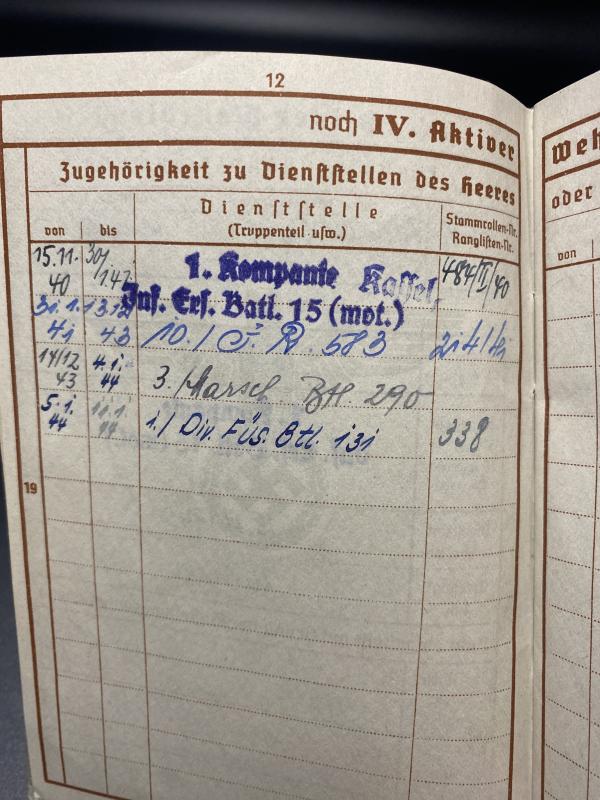 12
noch IV. Aktiver
Zugehörigkeit zu Dienststellen des Heeres
von bis Dienststelle (Truppenteil usw.) Stammrollen-Nr. Ranglisten-Nr.
15.11. 40 30/ 1.42 1. Kompanie Kassel, 484/II/40
Inf. Ers. Batl. 15 (mot.)
31.1. 41 13.12 43 10./ J. R. 583
14/12 43 4.1. 44 3. Marsch Btl. 290
5.1. 44 11.1. 44 1./ Div. Füs. Btl. 131 338
19
Weh
oder
von